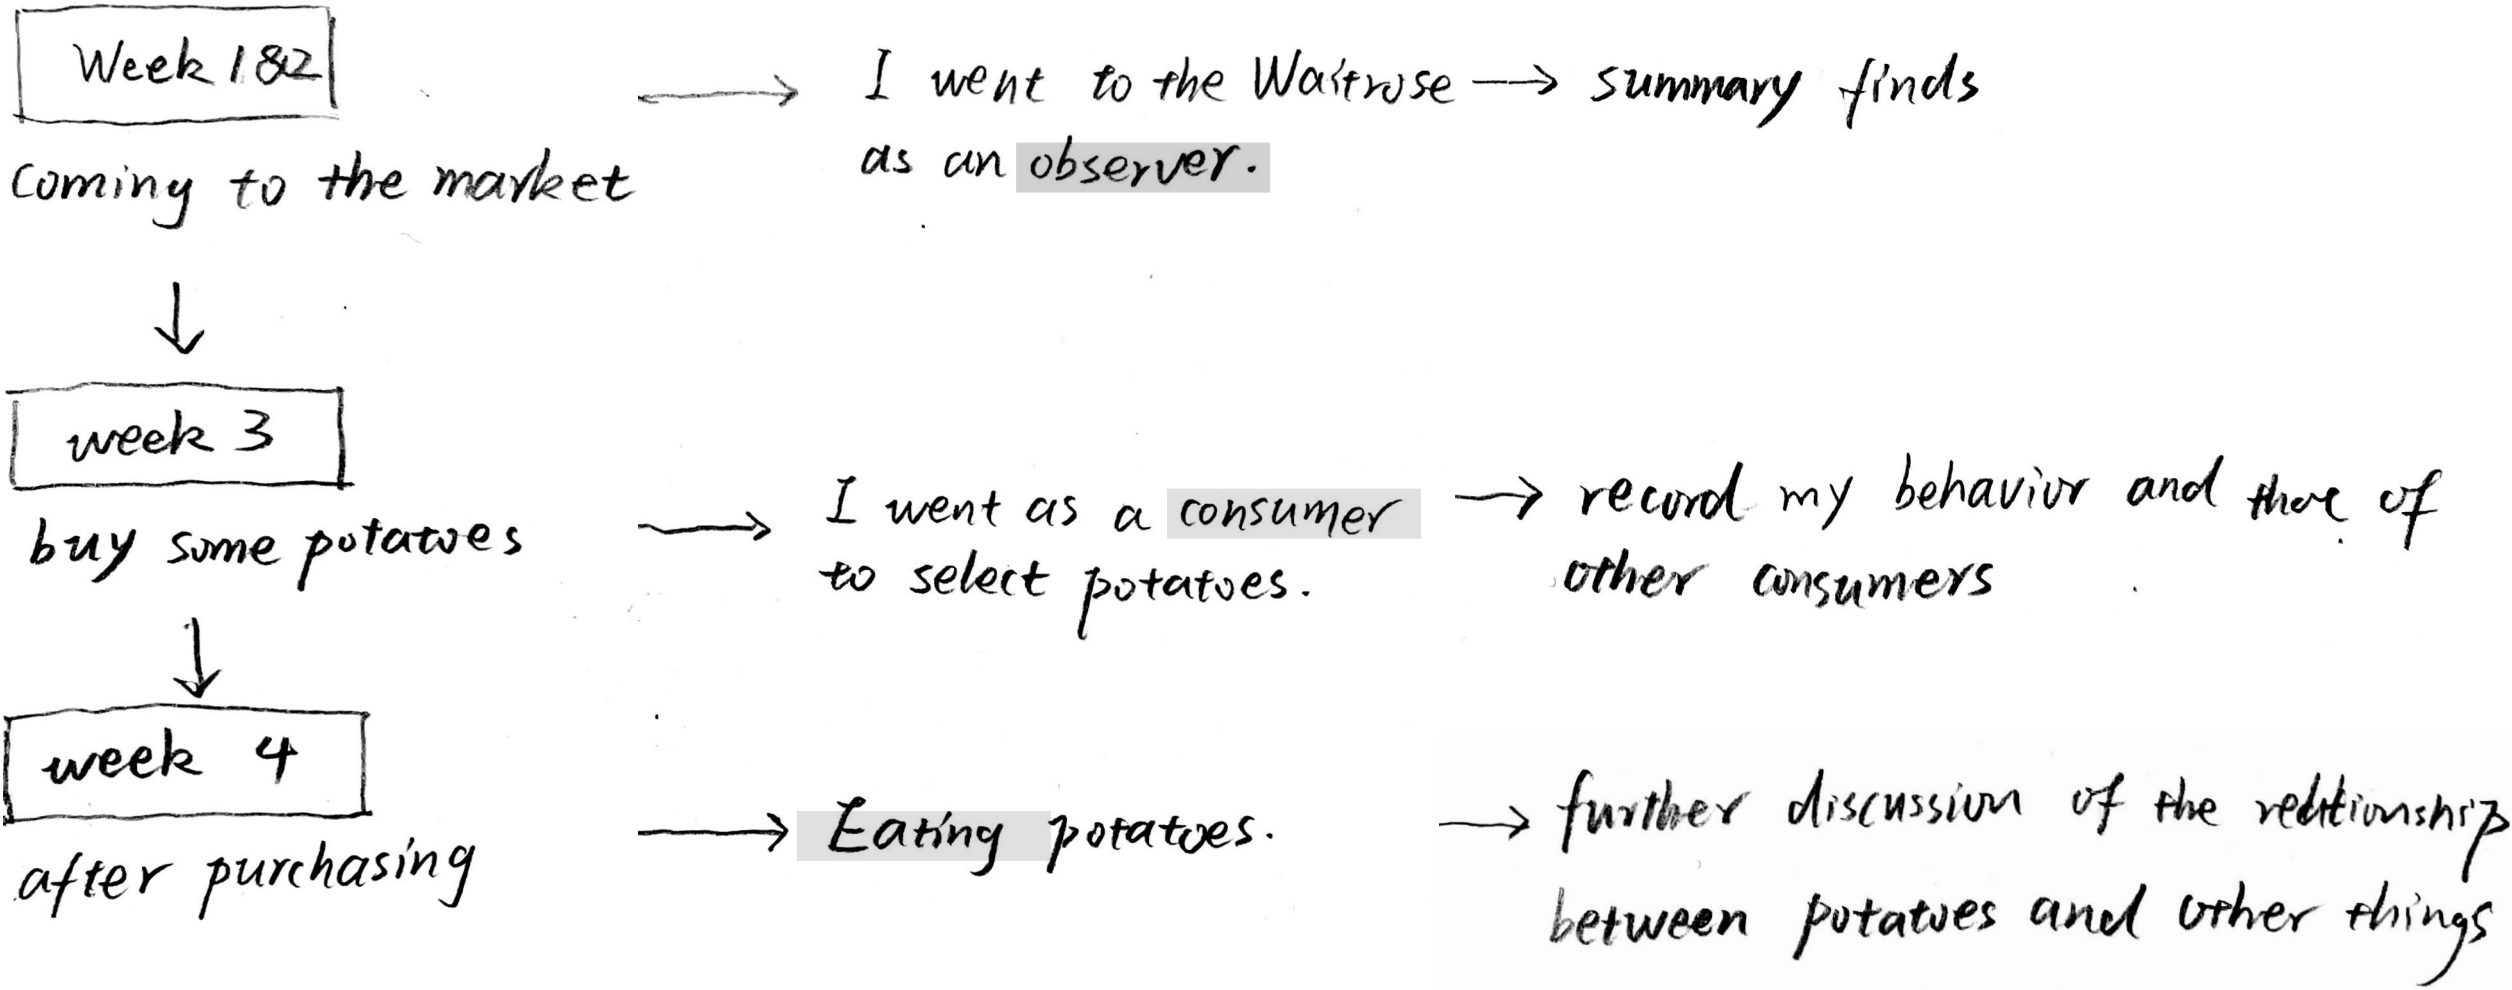 Week 1&2
coming to the market
I went to the Waitrose → summary finds
as an observer.
week 3
buy some potatoes
I went as a consumer
to select potatoes.
→ record my behavior and those of
other consumers
week 4
after purchasing
Eating potatoes.
→ further discussion of the relationship
between potatoes and other things